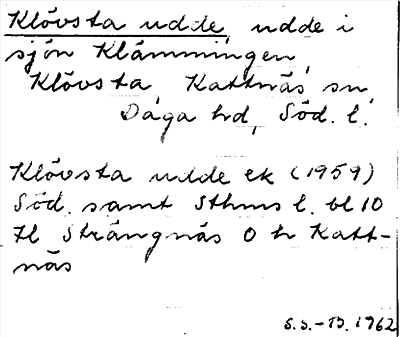 Klövsta udde, udde i
sjön Klämmingen,
Klövsta, Kattnäs sn,
Daga hd, Söd. l.
Klövsta udde ek (1959)
Söd. samt Sthms l. bl 10
Jl Strängnäs O h Katt-
näs
S.S.-B. 1962